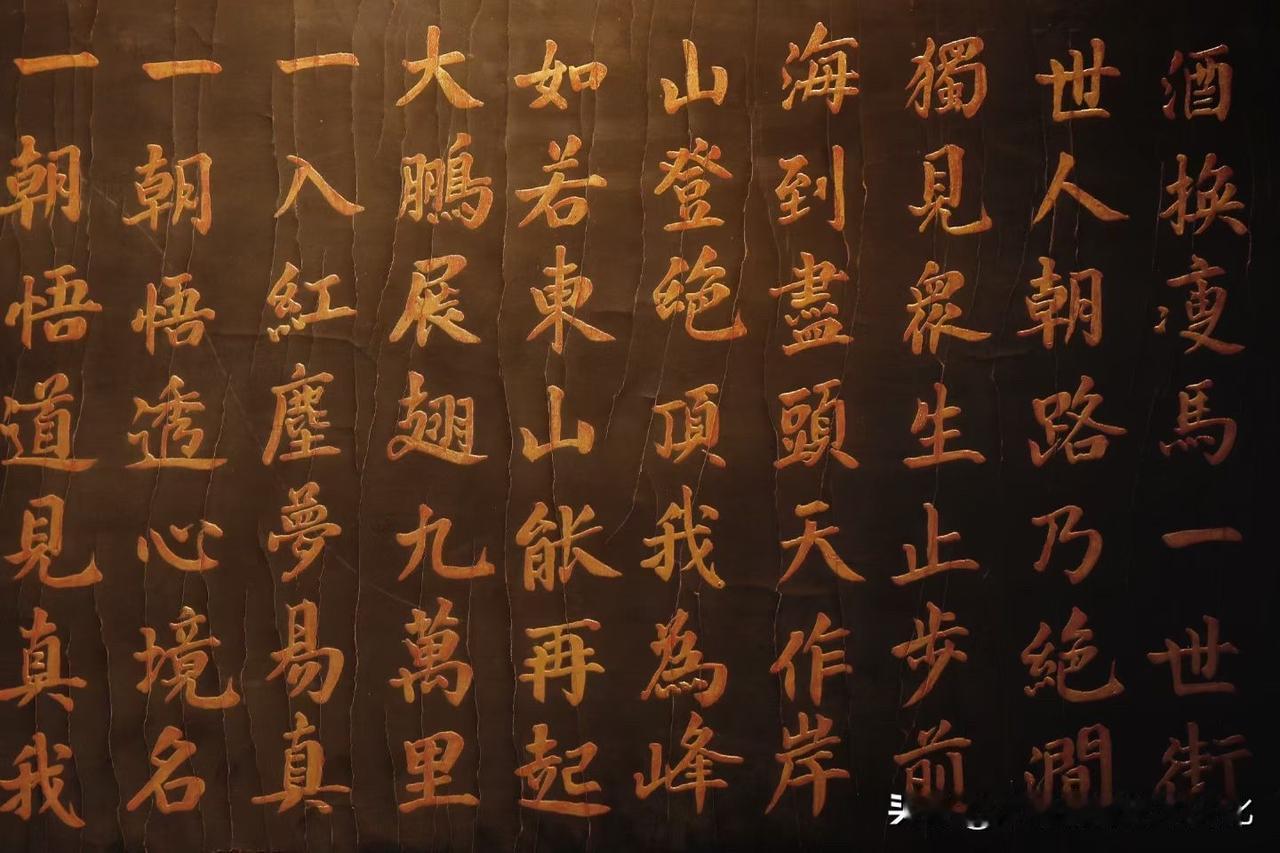 酒換瘦馬一世街
世人朝路乃絕澗
獨見眾生止步前
海到盡頭天作岸
山登絕頂我為峰
如若東山能再起
大鵬展翅九萬里
一入紅塵夢易真
一朝悟透心境名
一朝悟道見真我